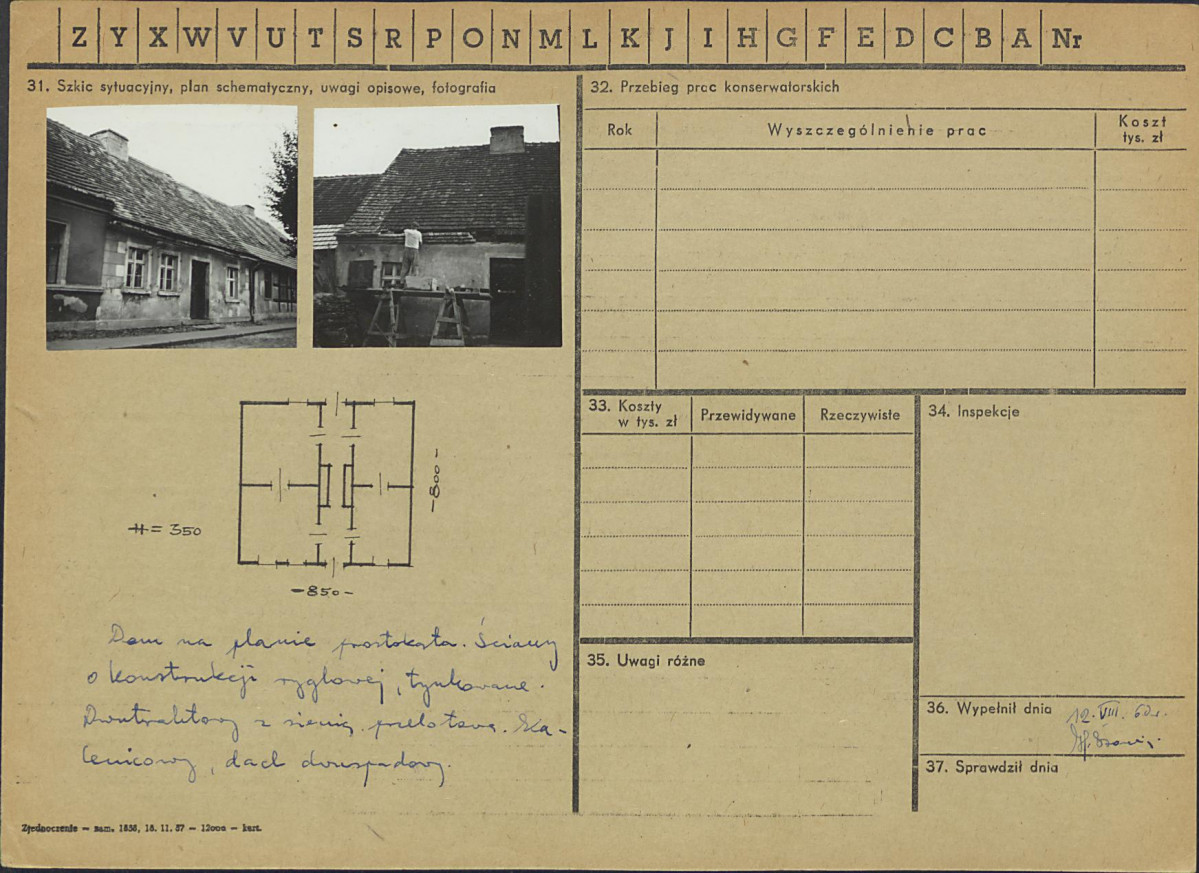 Z Y X W V U T S R P O N M L K J I H G F E D C B A Nr
31. Szkic sytuacyjny, plan schematyczny, uwagi opisowe, fotografia
H = 350
-800-
-850-
Dom na planie prostokąta. Ściany
o konstrukcji ryglowej, tynkowane.
Dwutraktowy z sienią przelotową. Ka-
lenicowy, dach dwuspadowy.
Zjednoczenie — zam. 1858, 18. 11. 57 — 12000 — kart.
32. Przebieg prac konserwatorskich
Rok
Wyszczególnienie prac
Koszt
tys. zł
33. Koszty
w tys. zł
Przewidywane
Rzeczywiste
34. Inspekcje
35. Uwagi różne
36. Wypełnił dnia
12. VIII. 60 r.
37. Sprawdził dnia